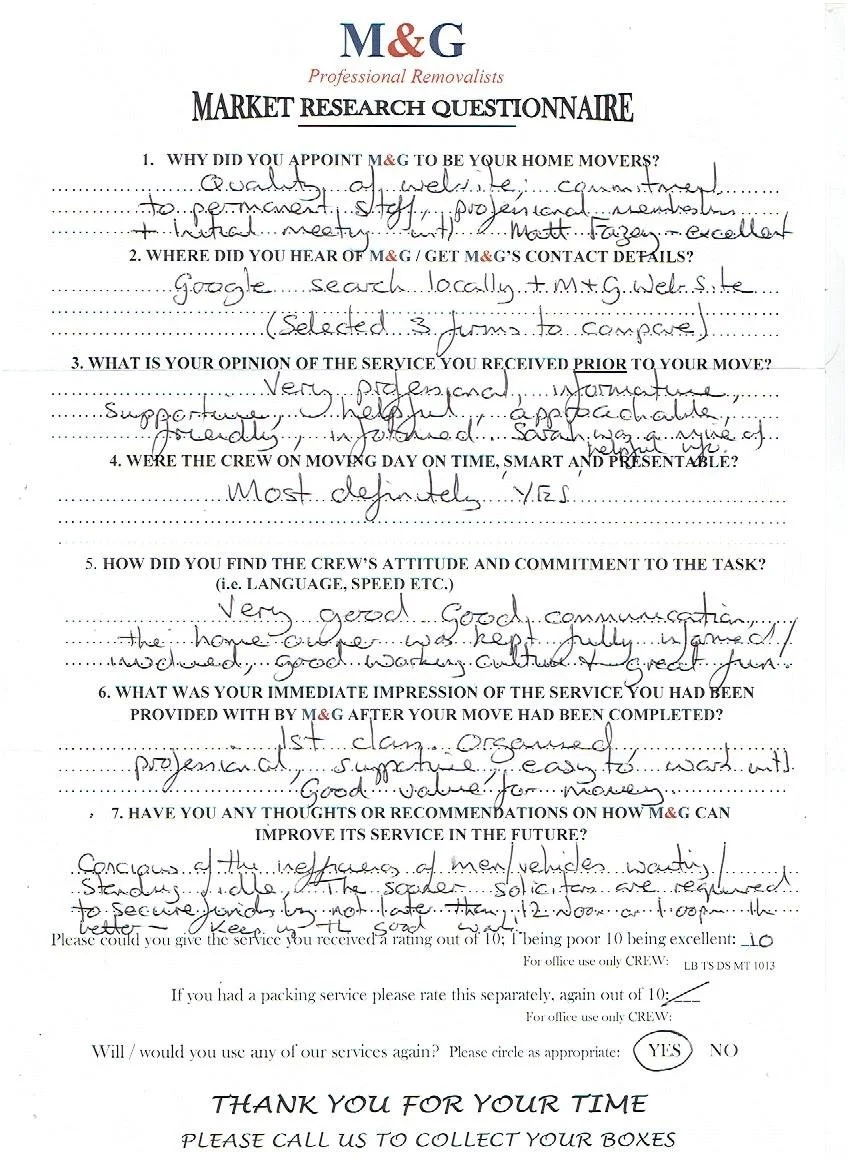 M&G
Professional Removalists
MARKET RESEARCH QUESTIONNAIRE
1. WHY DID YOU APPOINT M&G TO BE YOUR HOME MOVERS?
Quality of website, commitment
to permanent staff, professional members
+ initial meeting with Matt Fazey - excellent
2. WHERE DID YOU HEAR OF M&G / GET M&G'S CONTACT DETAILS?
Google search locally + M+G Web.Site
(Selected 3 firms to compare)
3. WHAT IS YOUR OPINION OF THE SERVICE YOU RECEIVED PRIOR TO YOUR MOVE?
Very professional, informative,
supportive, helpful, approachable,
friendly, informed. Sarah was a mine of
helpful info.
4. WERE THE CREW ON MOVING DAY ON TIME, SMART AND PRESENTABLE?
Most definitely 'YES'
5. HOW DID YOU FIND THE CREW'S ATTITUDE AND COMMITMENT TO THE TASK?
(i.e. LANGUAGE, SPEED ETC.)
Very good. Good communication,
the home owner was kept fully informed/
involved, good working culture + great fun.
6. WHAT WAS YOUR IMMEDIATE IMPRESSION OF THE SERVICE YOU HAD BEEN
PROVIDED WITH BY M&G AFTER YOUR MOVE HAD BEEN COMPLETED?
1st class. Organised,
professional, supportive, easy to work with.
Good value for money.
7. HAVE YOU ANY THOUGHTS OR RECOMMENDATIONS ON HOW M&G CAN
IMPROVE ITS SERVICE IN THE FUTURE?
Concious of the of men/vehicles waiting/
standing idle, The sooner solicitors are required
to secure funds by not later than 12 Noon or 1.00pm the
better - Keep up the good work.
Please could you give the service you received a rating out of 10; 1 being poor 10 being excellent: 10
For office use only CREW: LB TS DS MT 1013
If you had a packing service please rate this separately, again out of 10:
For office use only CREW:
Will / would you use any of our services again? Please circle as appropriate: YES NO
THANK YOU FOR YOUR TIME
PLEASE CALL US TO COLLECT YOUR BOXES